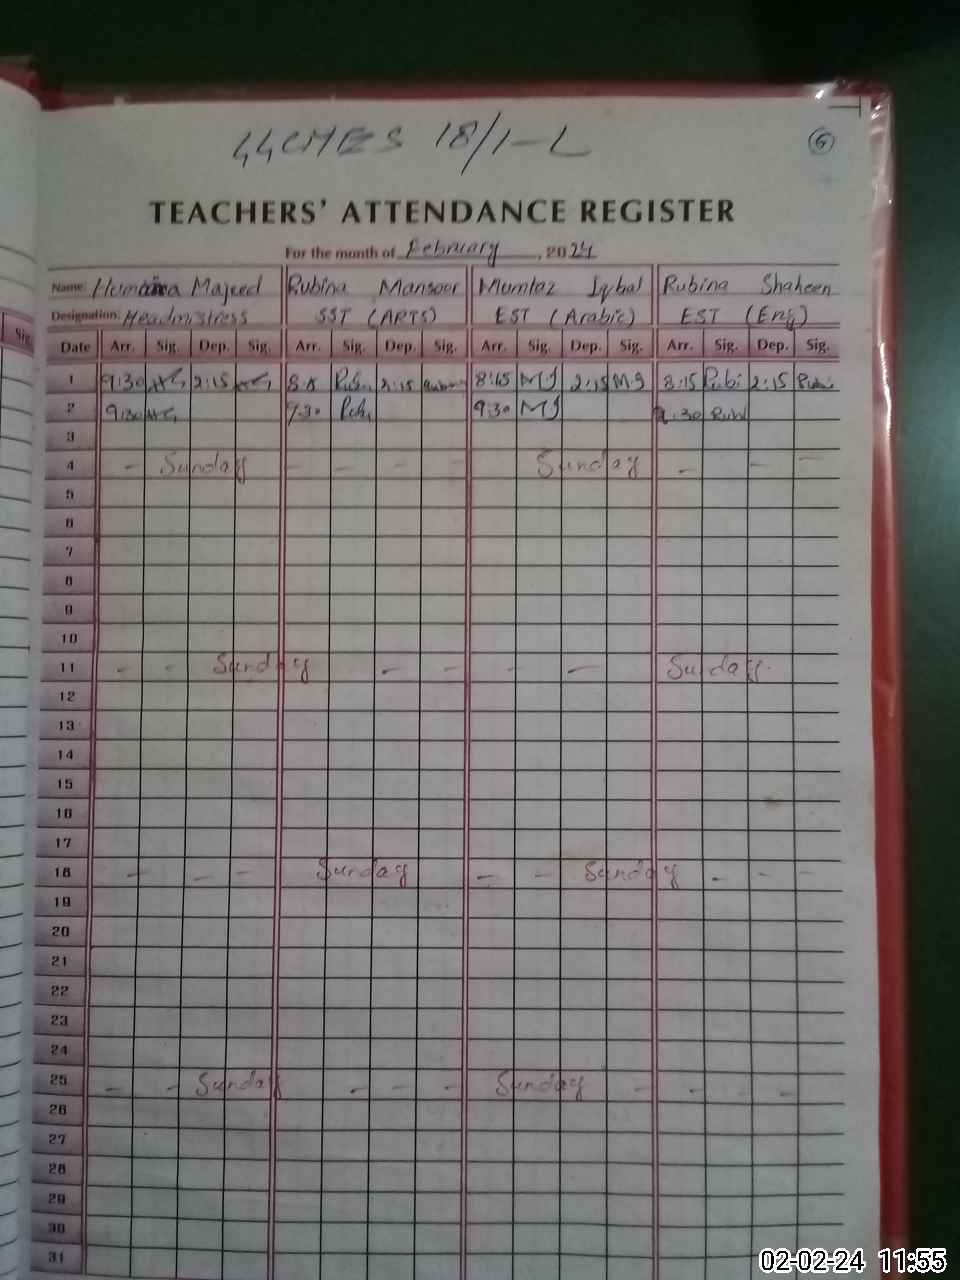 18/1-L
6
TEACHERS' ATTENDANCE REGISTER
For the month of February, 2024
Name: Humaira Majeed Rubina Mansoor Mumtaz Iqbal Rubina Shaheen
Designation: Headmistress SST (ARTS) EST (Arabic) EST (Eng)
Date Arr. Sig. Dep. Sig. Arr. Sig. Dep. Sig. Arr. Sig. Dep. Sig. Arr. Sig. Dep. Sig.
1 9:30 2:15 2:15 8:15 MI 2:15 8:15 Rubi 2:15
2 9:30 7:30 9:30 MI :30
3
4 - Sunday - - - - Sunday - - -
5
6
7
8
9
10
11 - - Sunday - - - - Sunday
12
13
14
15
16
17
18 - - - Sunday - - Sunday - - -
19
20
21
22
23
24
25 - - Sunday - - - Sunday - - - -
26
27
28
29
30
31
Sig.
02-02-24 11:55